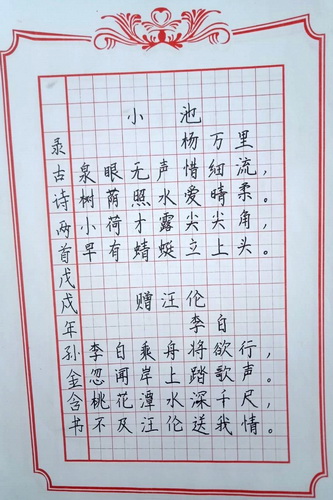 小池
杨万里
泉眼无声惜细流，
树荫照水爱晴柔。
小荷才露尖尖角，
早有蜻蜓立上头。
赠汪伦
李白
李白乘舟将欲行，
忽闻岸上踏歌声。
桃花潭水深千尺，
不及汪伦送我情。
录古诗两首戊戌年孙金含书